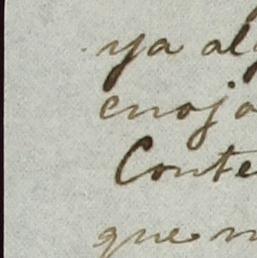 ya al
enojo
Conte
que